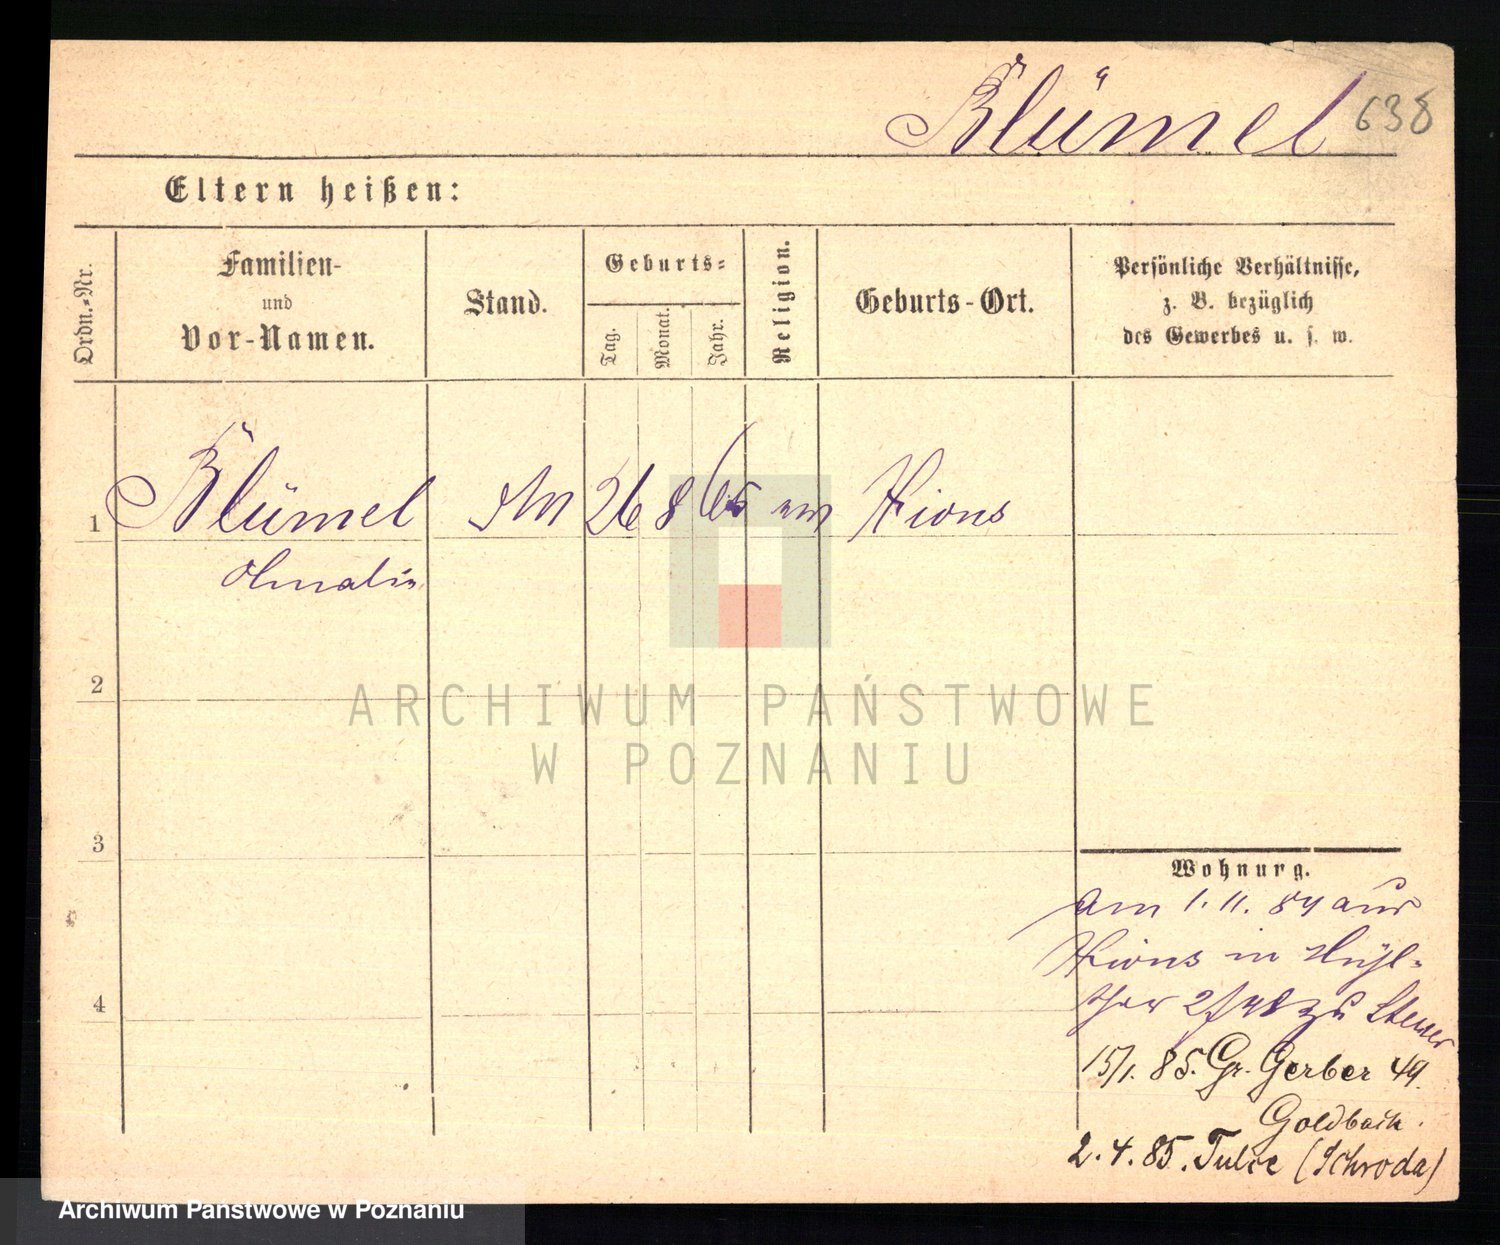 Blümel 638
Eltern heißen:
Ordn.-Nr.
Familien-
und
Vor-Namen.
Stand.
Geburts-
Tag.
Monat.
Jahr.
Religion.
Geburts-Ort.
Persönliche Verhältnisse,
z. B. bezüglich
des Gewerbes u. s. w.
1 Blümel 26 8 65 Xions
Amalie
2
ARCHIWUM PAŃSTWOWE
W POZNANIU
3
Wohnung.
am 1. 11. 84 aus
Xions in Mühl-
thor zu
15/1. 85. Gr. Gerber 49.
Goldbach.
4
2. 4. 85. Tulce (Schroda)
Archiwum Państwowe w Poznaniu